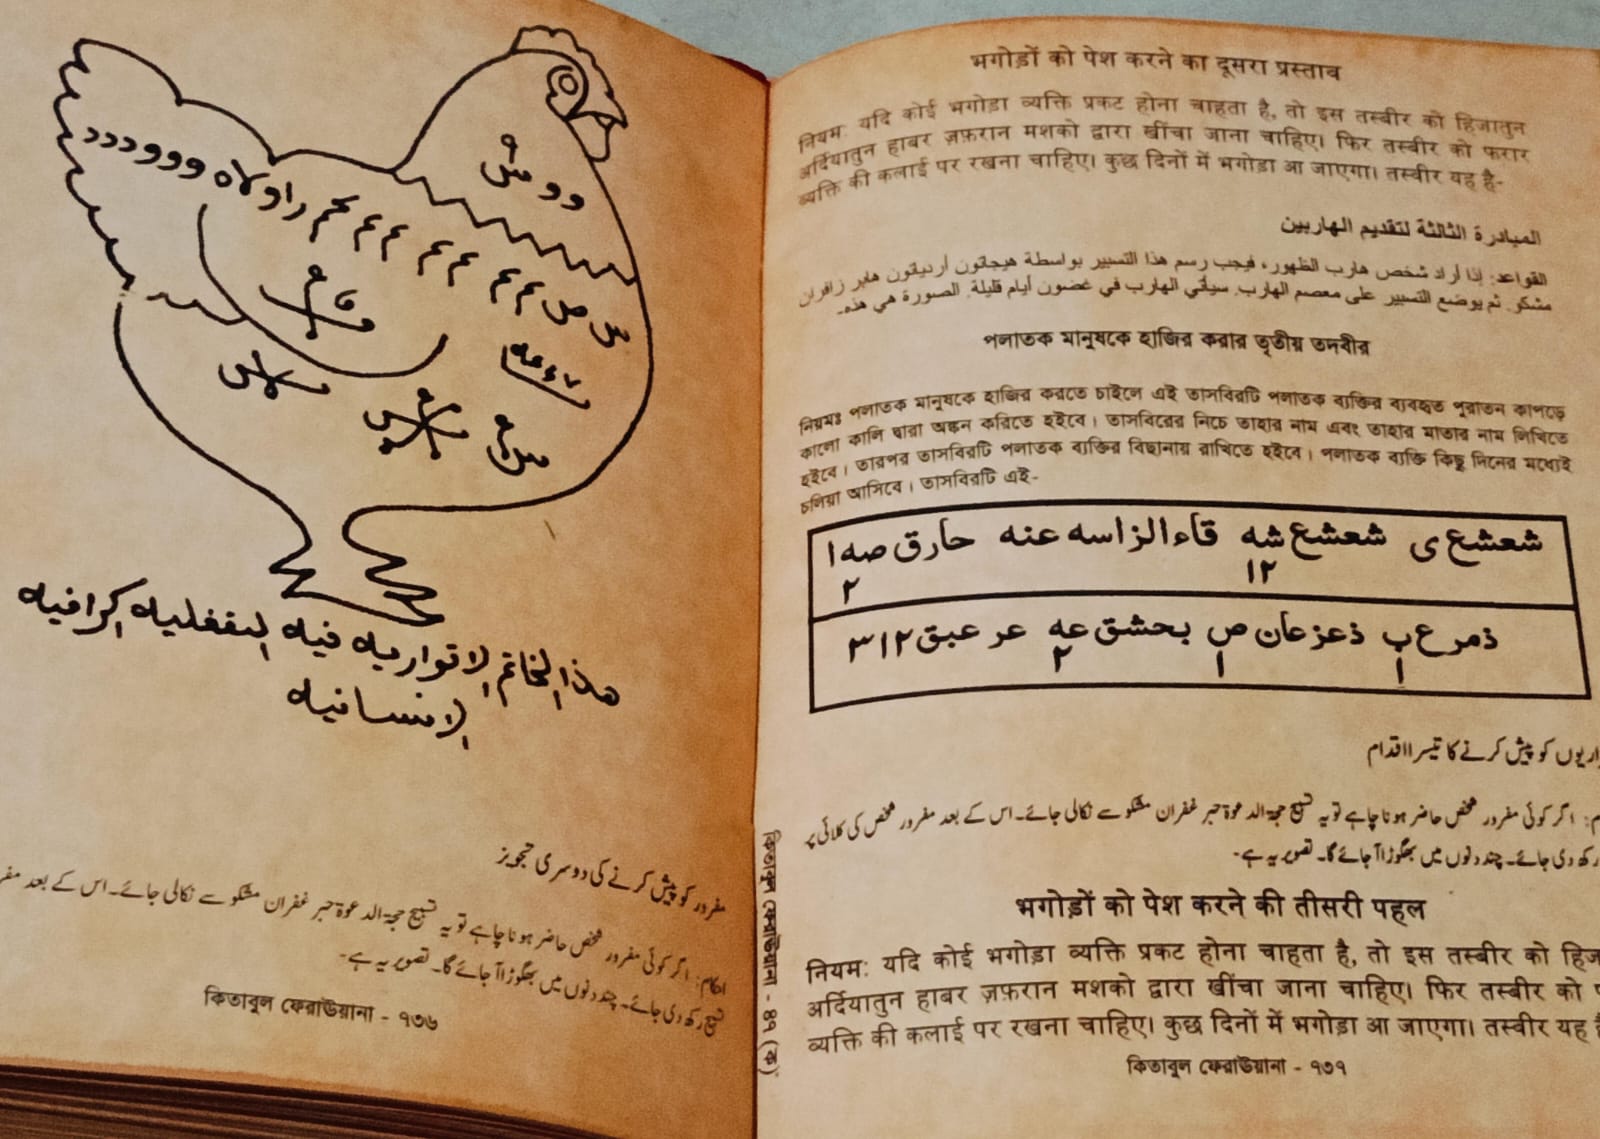 و و مثى
هذا الخاتم الاقواريه فيه النفغليه اكرافيه
الانسانيه
مفرور کو پیش کرنے کی دوسری تجویز
احکام: اگر کوئی مفرور شخص حاضر ہونا چاہے تو یہ تسبیح حجۃ الدعوۃ حبر غفران مشکو سے نکالی جائے۔ اس کے بعد
تسبیح رکھ دی جائے۔ چند دنوں میں بھگوڑا آ جائے گا۔ تصویر یہ ہے۔
কিতাবুল ফেরাউয়ানা - ৭৩৬
भगोड़ों को पेश करने का दूसरा प्रस्ताव
नियम: यदि कोई भगोड़ा व्यक्ति प्रकट होना चाहता है, तो इस तस्बीर को हिजातुन
अर्दियातुन हाबर ज़फ़रान मशको द्वारा खींचा जाना चाहिए। फिर तस्बीर को फरार
व्यक्ति की कलाई पर रखना चाहिए। कुछ दिनों में भगोड़ा आ जाएगा। तस्वीर यह है-
المبادرة الثالثة لتقديم الهاربين
القواعد: إذا أراد شخص هارب الظهور، فيجب رسم هذا التسبير بواسطة هيجاتون أرديأتون هابر زافران
مشكو. ثم يوضع التسبير على معصم الهارب. سيأتي الهارب في غضون أيام قليلة. الصورة هي هذه.
পলাতক মানুষকে হাজির করার তৃতীয় তদবীর
নিয়মঃ পলাতক মানুষকে হাজির করতে চাইলে এই তাসবিরটি পলাতক ব্যক্তির ব্যবহৃত পুরাতন কাপড়ে
কালো কালি দ্বারা অঙ্কন করিতে হইবে। তাসবিরের নিচে তাহার নাম এবং তাহার মাতার নাম লিখিতে
হইবে। তারপর তাসবিরটি পলাতক ব্যক্তির বিছানায় রাখিতে হইবে। পলাতক ব্যক্তি কিছু দিনের মধ্যেই
চলিয়া আসিবে। তাসবিরটি এই-
شعشع ى شعشع شه قاء الزاسه عنه حارق صه ا
١٢ ٢
ذمر ع ب ذعز عان ص بحشق عه عر عبق ٣١٢
١ ١ ٢
کو پیش کرنے کا تیسرا اقدام
اگر کوئی مفرور شخص حاضر ہونا چاہے تو یہ تسبیح حجۃ الدعوۃ حبر غفران مشکو سے نکالی جائے۔ اس کے بعد مفرور شخص کی کلائی پر
رکھ دی جائے۔ چند دنوں میں بھگوڑا آ جائے گا۔ تصویر یہ ہے۔
भगोड़ों को पेश करने की तीसरी पहल
नियम: यदि कोई भगोड़ा व्यक्ति प्रकट होना चाहता है, तो इस तस्बीर को
अर्दियातुन हाबर ज़फ़रान मशको द्वारा खींचा जाना चाहिए। फिर तस्बीर को
व्यक्ति की कलाई पर रखना चाहिए। कुछ दिनों में भगोड़ा आ जाएगा। तस्वीर यह
কিতাবুল ফেরাউয়ানা - ৭৩৭
কিতাবুল ফেরাউয়ানা - ৪৭ (ক)